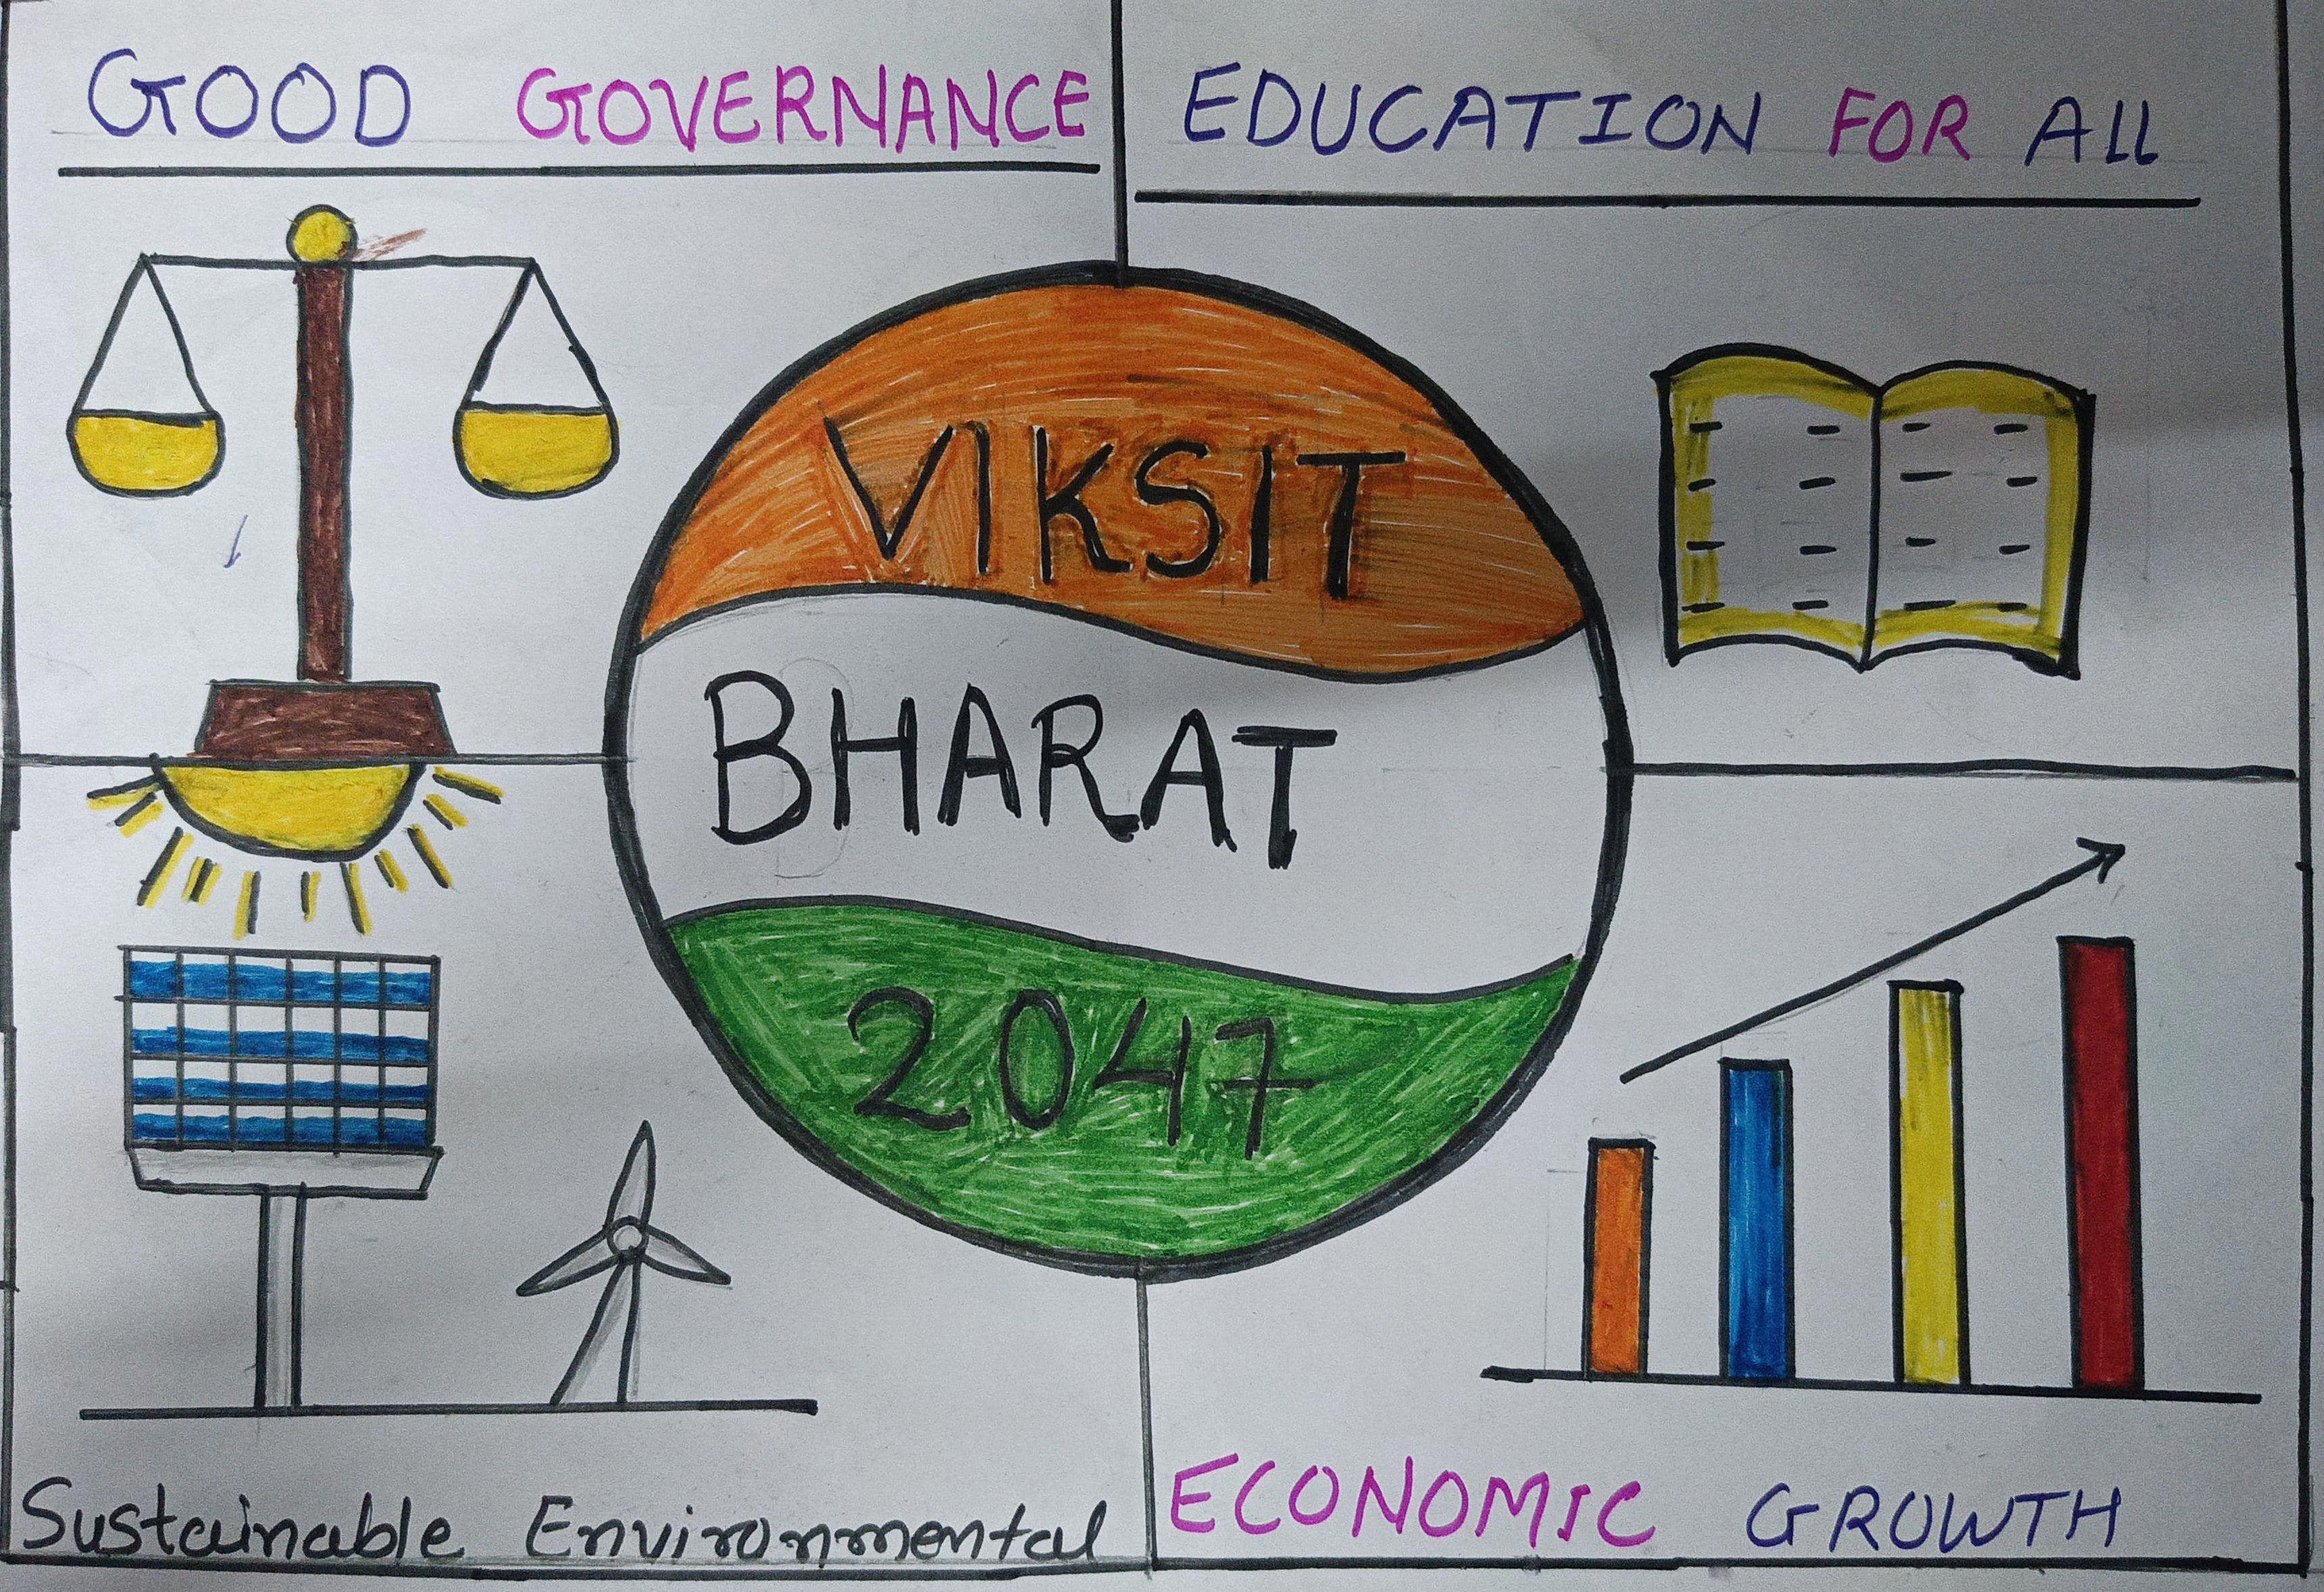 GOOD GOVERNANCE
EDUCATION FOR ALL
VIKSIT
BHARAT
2047
Sustainable Environmental
ECONOMIC GROWTH